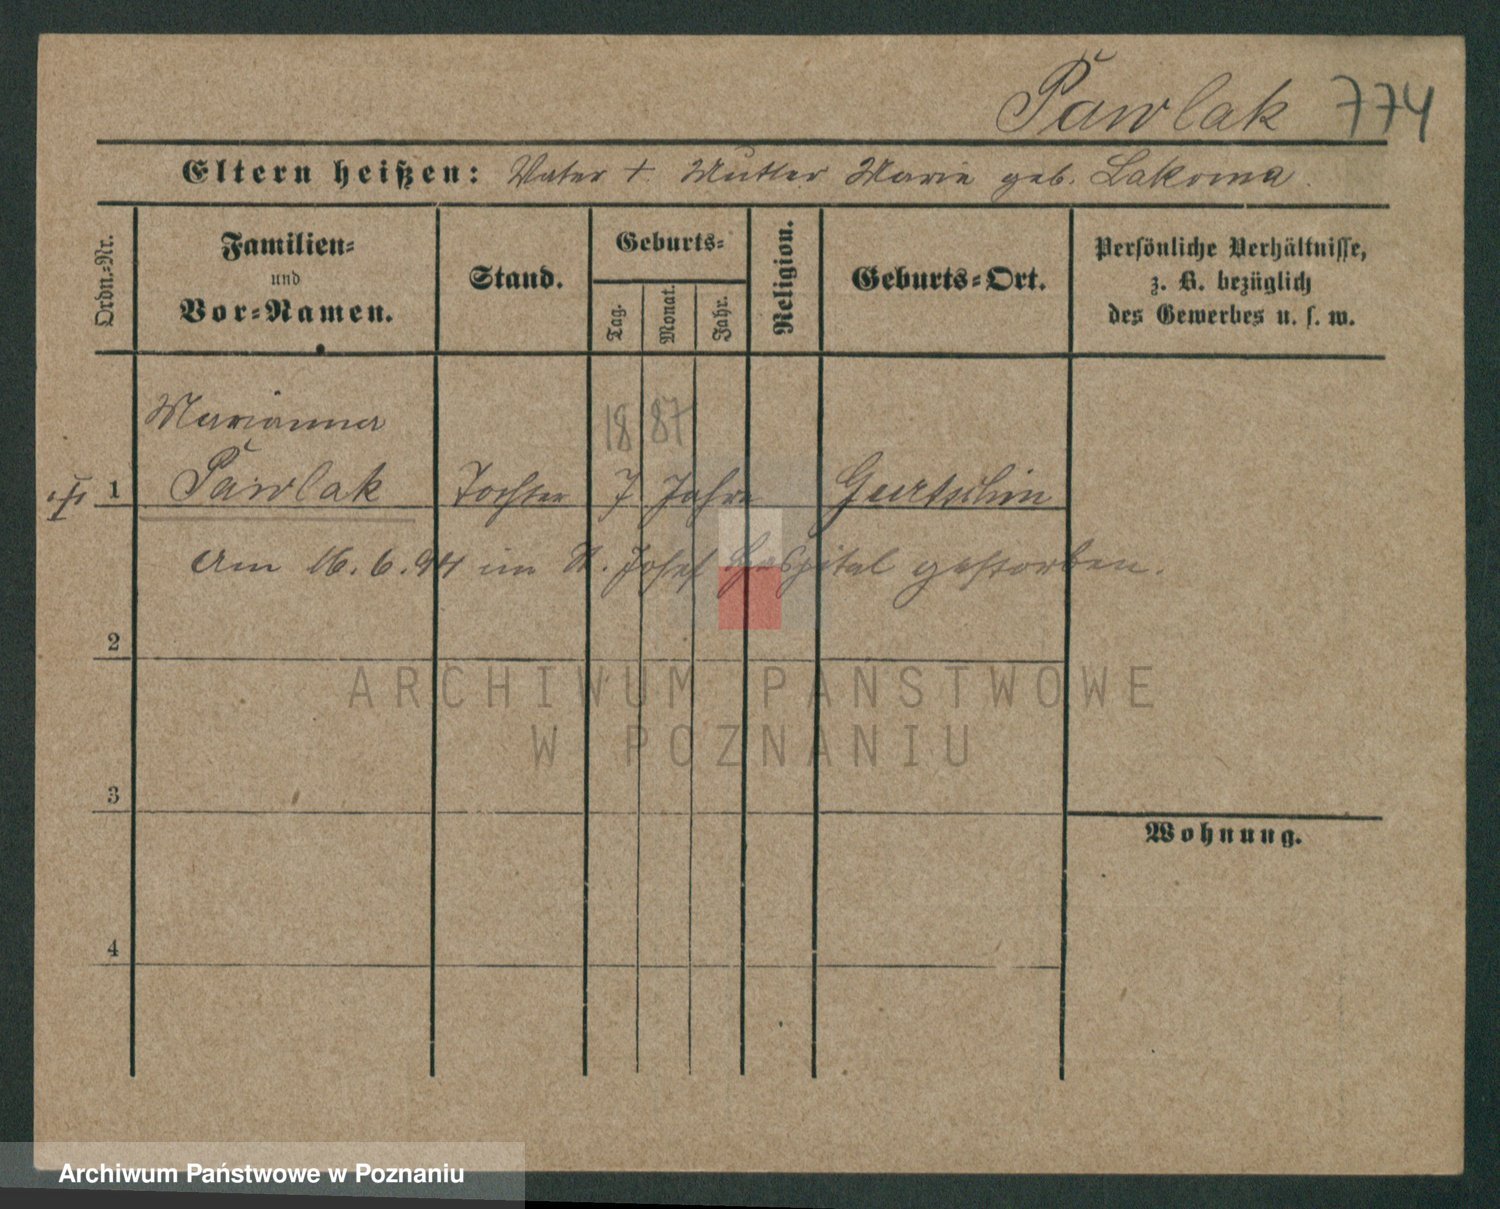 Pawlak 774
Eltern heißen: Vater +. Mutter Marie geb. Lakoma.
Ordn.-Nr.
Familien-
und
Vor-Namen.
Stand.
Geburts-
Tag.
Monat.
Jahr.
Religion.
Geburts-Ort.
Persönliche Verhältnisse,
z. B. bezüglich
des Gewerbes u. s. w.
Marianna 18 87
1 Pawlak Tochter 7 Jahre
Am 16.6.94 im St. Josef Hospital gestorben.
2
ARCHIWUM PAŃSTWOWE
W POZNANIU
3
Wohnung.
4
Archiwum Państwowe w Poznaniu